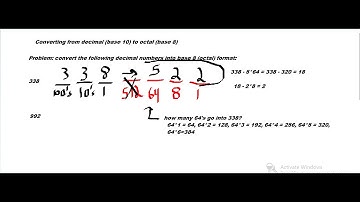 Converting from decimal (base 10) to octal (base 8)
Problem: convert the following decimal numbers into base 8 (octal) format:
338
3 3 8 → 5 2 2
100's 10's 1 512 64 8 1
338 - 5*64 = 338 - 320 = 18
18 - 2*8 = 2
992
how many 64's go into 338?
64*1 = 64, 64*2 = 128, 64*3 = 192, 64*4 = 256, 64*5 = 320,
64*6=384
Activate Windows